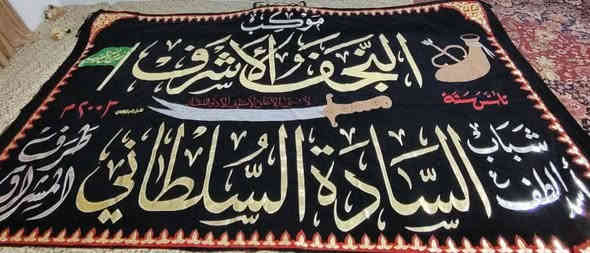 موكب
النجف الأشرف
تأسس سنة ٢٠٠٣ م
شباب السادة السلطاني طرف
الطف المشراق